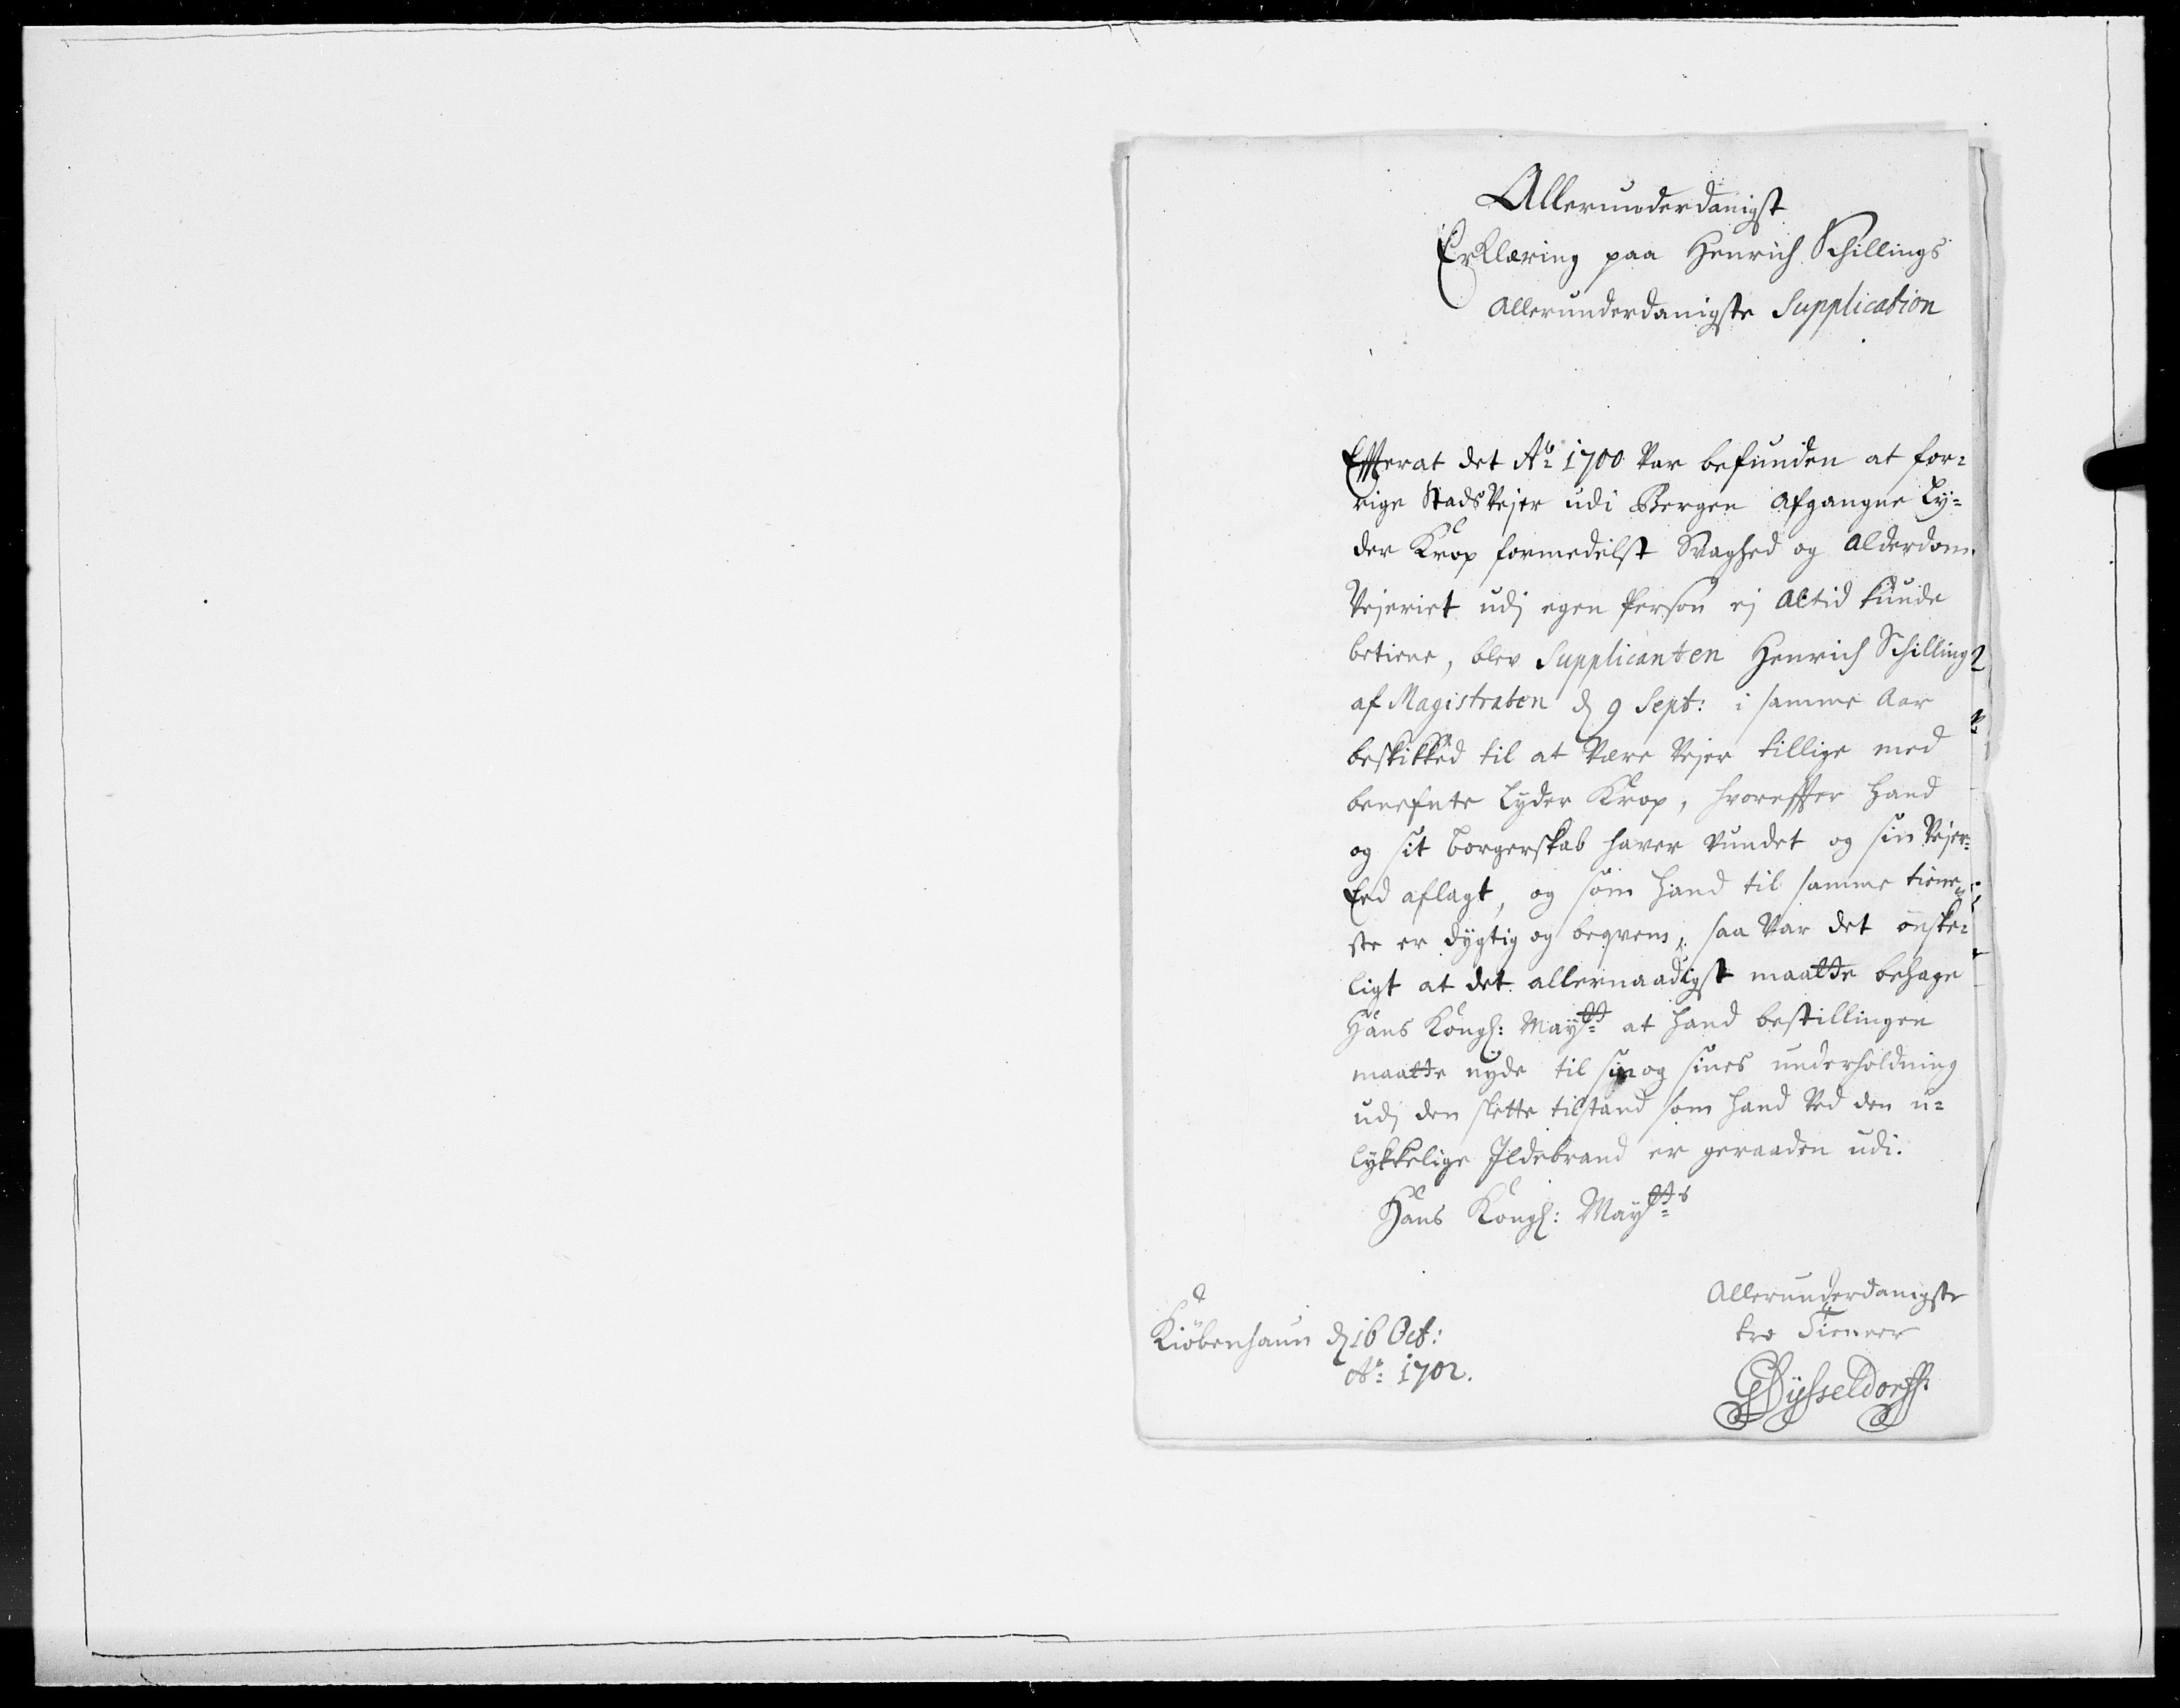 Allerunderdanigst
Erklæring paa Henrich Schillings
allerunderdanigste Supplication
Effterat det Ao: 1700 var befunden at for=
rige Stadsvejer udi Bergen afgangne Ly=
der Krop formedelst Svaghed og Alderdom
Vejeriet udj egen Person ej altid kunde
betiene, blev Supplicanten Henrich Schilling
af Magistraten d 9 Sept: i samme Aar
beskikked til at være Vejer tillige med
benefnte Lyder Krop, hvoreffter hand
og sit borgerskab haver vundet og sin Vejer=
Eed aflagt, og som hand til samme tiene=
ste er dygtig og beqvem, saa var det ønske=
ligt at det allernaadigst maatte behage
Hans Kongl: Maytt at hand bestillingen
maatte nyde til sin og sines underholdning
udj den slette tilstand som hand ved den u=
lykkelige Ildebrand er geraaden udi.
Hans Kongl: Maytts
Allerunderdanigste
tro Tiener
Kiøbenhaun d 16 Oct:
Ao: 1702.
Dysseldorff